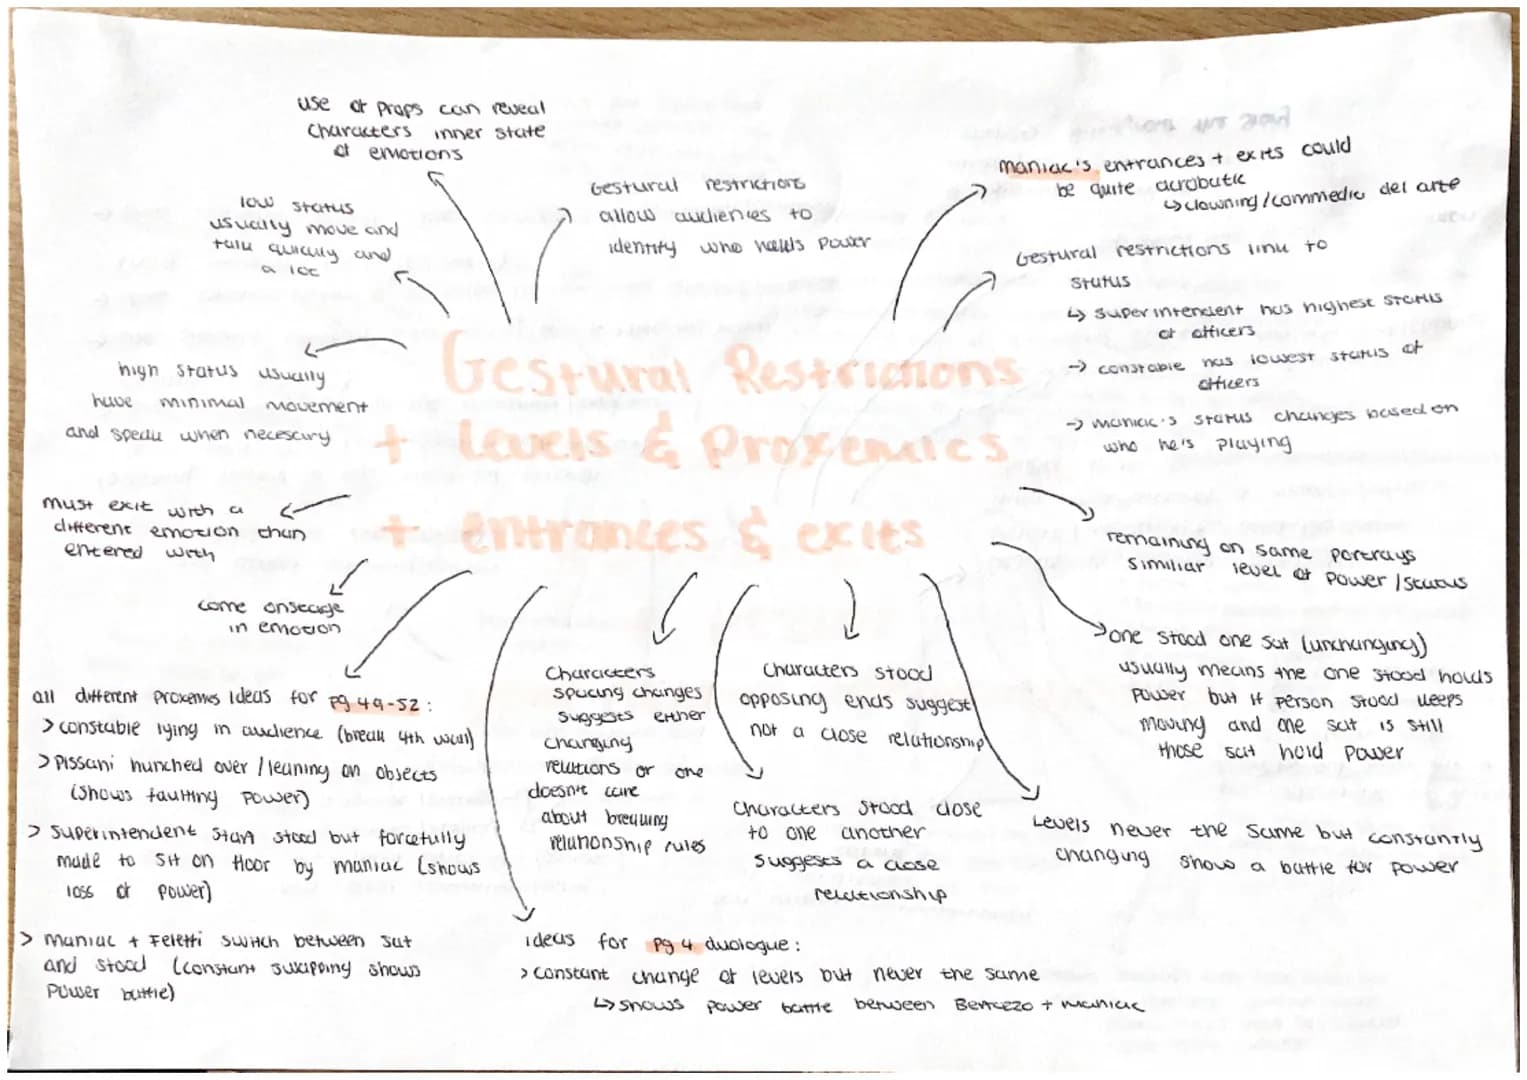 Gestural Restrictions
+ Levels & Proxemics
+ entrances & exits
use of props can reveal
characters inner state
of emotions
low status
usually move and
talk quickly and
a lot
Gestural restrictions
allow audiences to
identify who holds power
maniac's entrances + exits could
be quite acrobatic
↳ clowning/commedic del arte
Gestural restrictions link to
status
↳ superintendent has highest status
of officers
→ constable has lowest status of
officers
→ maniac's status changes based on
who he's playing
high status usually
have minimal movement
and speak when necescary
must exit with a
different emotion than
entered with
come onseage
in emotion
remaining on same portrays
similiar level of power/status
one stood one sat (unchanging)
usually means the one stood holds
power but if person stood keeps
moving and one sat is still
those sat hold power
Levels never the same but constantly
changing show a battle for power
Characters stood
opposing ends suggest
not a close relationship
Characters stood close
to one another
suggests a close
relationship
Characters
spacing changes
suggests either
changing
relations or one
doesn't care
about breaking
relationship rules
all different proxemis ideas for pg 49-52:
> constable lying in audience (break 4th wall)
> Pissani hunched over/leaning on objects
(shows faulting power)
> superintendent start stood but forcefully
made to sit on floor by maniac (shows
loss of power)
> maniac + Feletti switch between sat
and stood (constant shows
power battle)
ideas for pg 4 duologue:
> constant change of levels but never the same
↳ shows power battle between Bertozzo + maniac